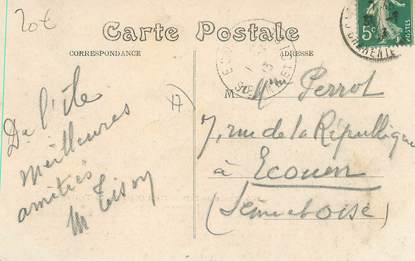 20€
Carte Postale
CORRESPONDANCE
ADRESSE
De l'Ile
meilleures
amitiés
M Tison
M Perrot
7, rue de la République
à Ecouen
(Seine et Oise)
5c
POSTES